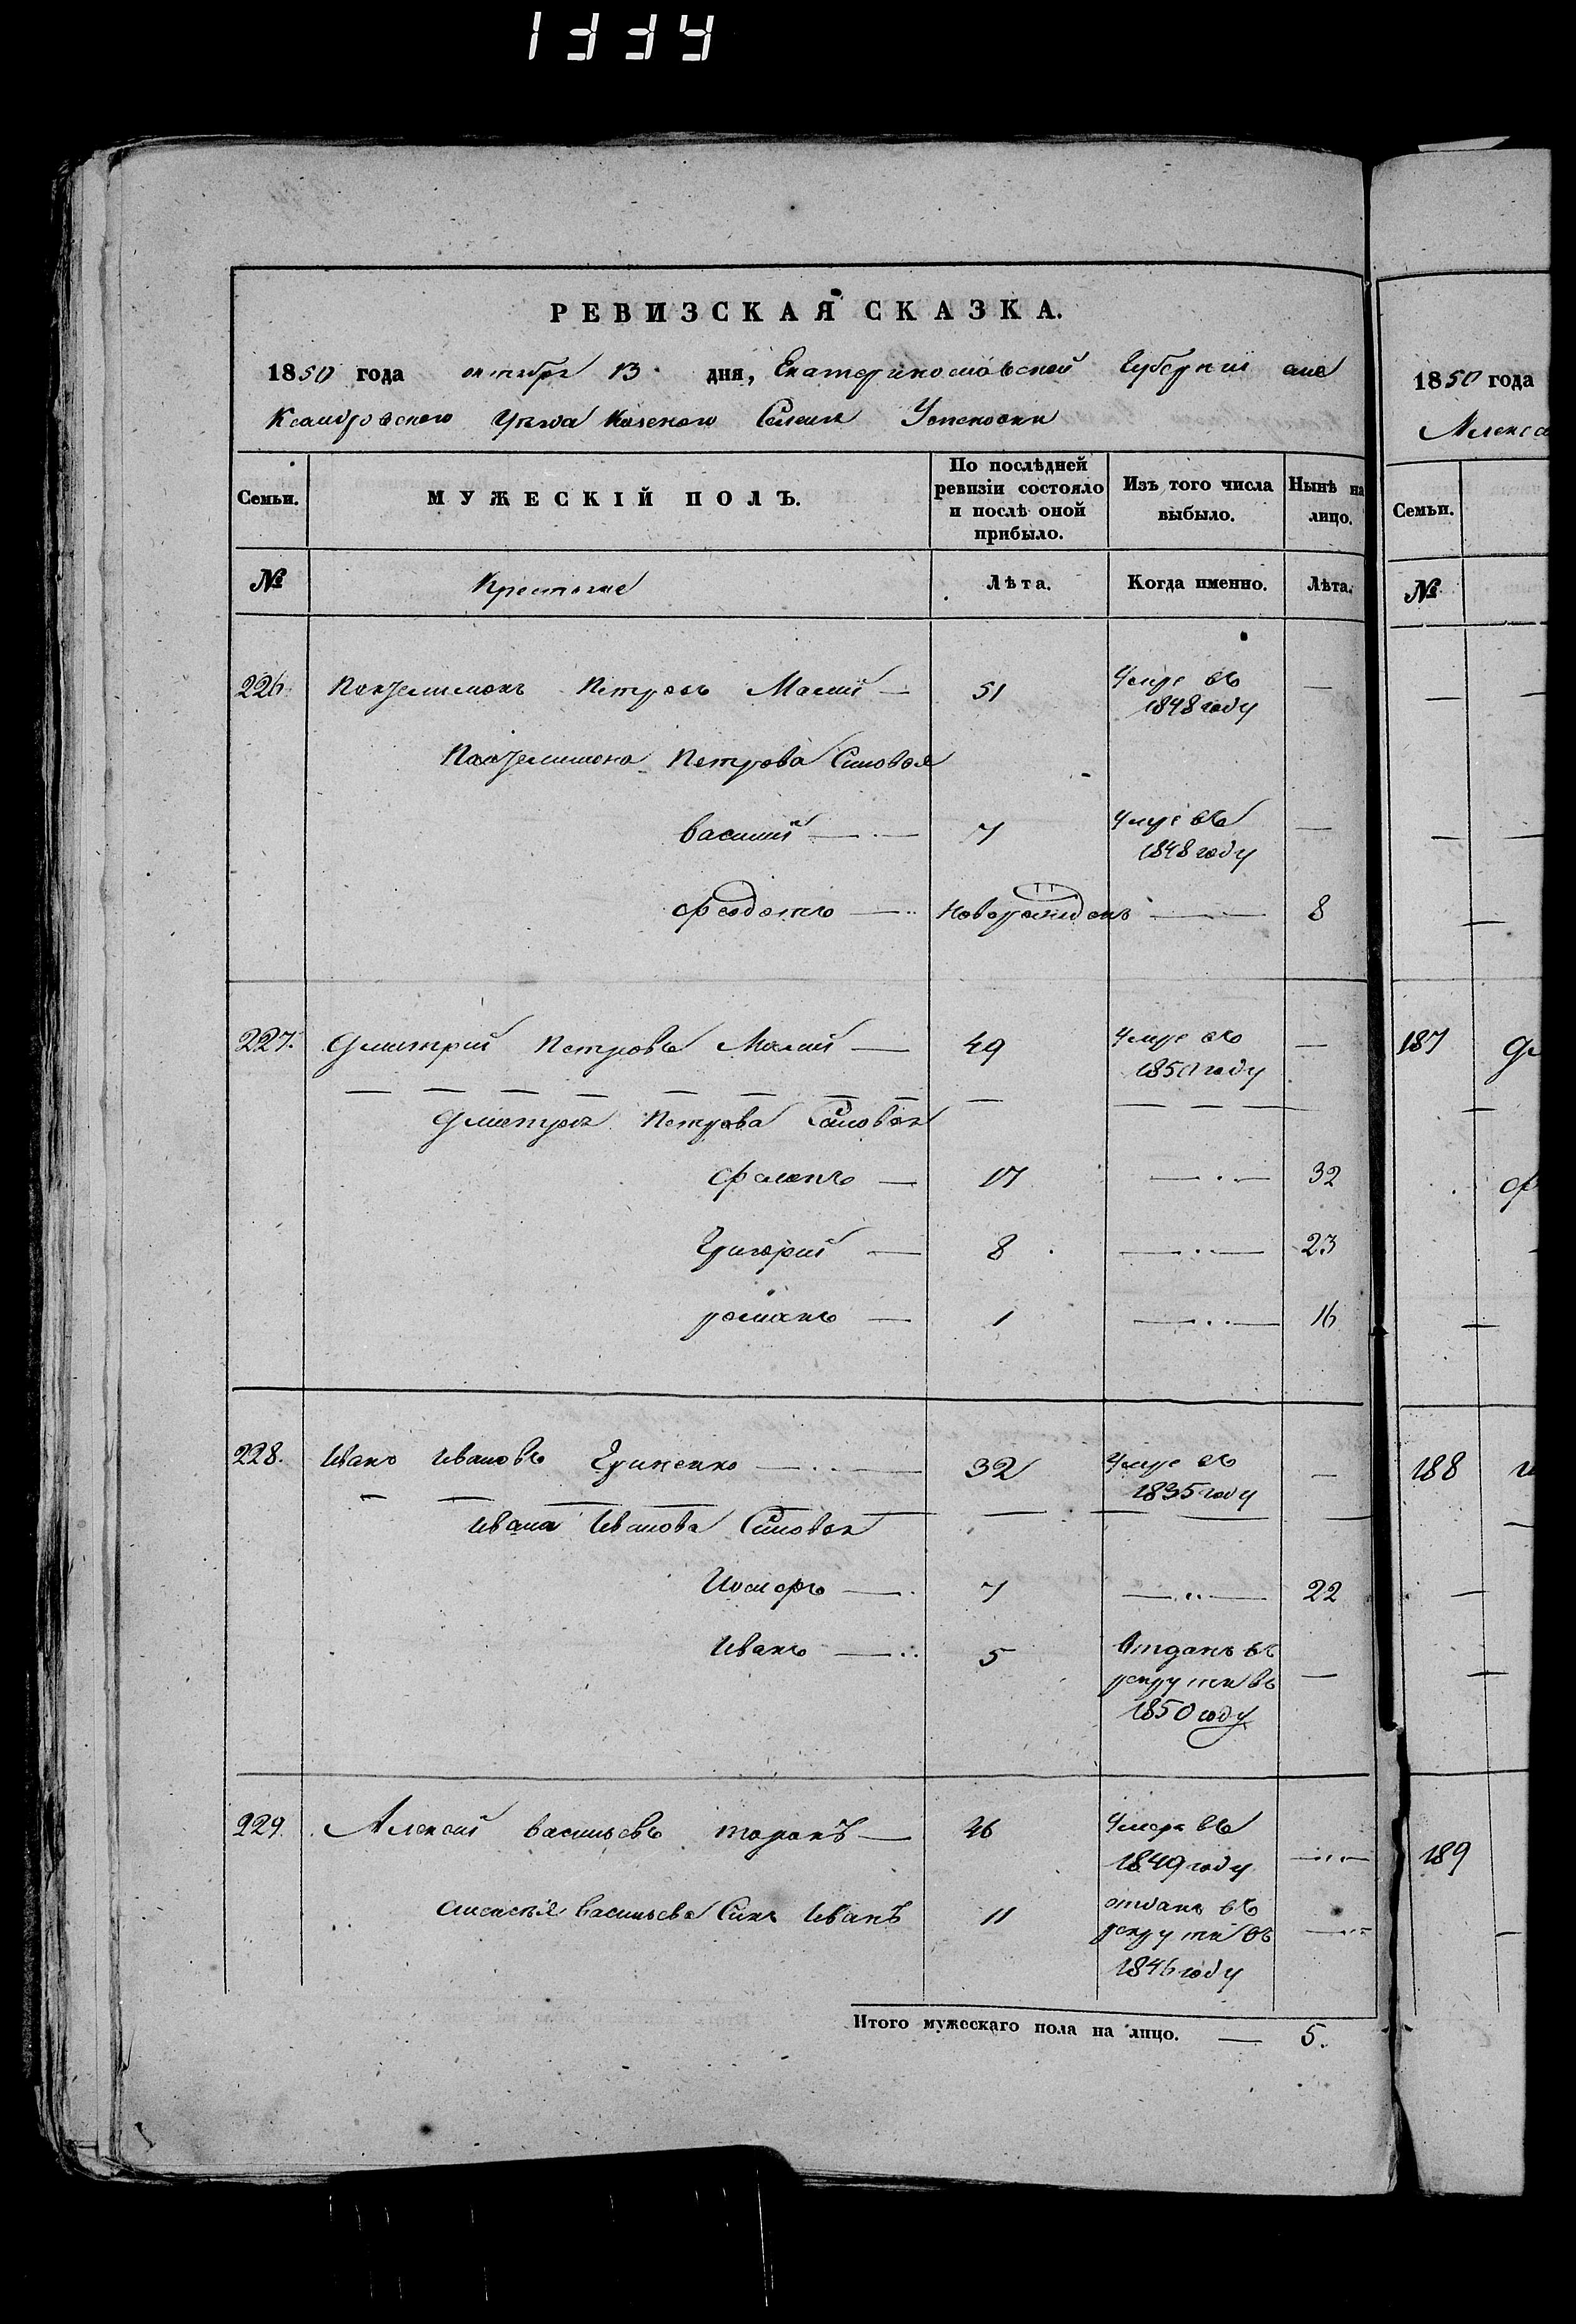 1334
РЕВИЗСКАЯ СКАЗКА.
1850 года октября 13 дня, Екатеринославской Губернии Але
ксандровского Уезда Казеного Селения Успеновки
Семьи.
МУЖЕСКІЙ ПОЛЪ.
По послѣдней ревизіи состояло и послѣ оной прибыло.
Изъ того числа выбыло.
Нынѣ на лицо.
№
Крестьяне
Лѣта.
Когда именно.
Лѣта.
226. Пантелимонъ Петровъ Малий — 51 Умре въ 1848 году —
Пантелимона Петрова Синовья
Василий — 7 Умре въ 1848 году —
Феодотъ — новорожденъ — 8
227. Дмитрий Петровъ Малий — 49 Умре въ 1850 году —
Дмитрия Петрова Синовья
Филипъ — 17 — 32
Григорий — 8 — 23
романъ — 1 — 16
228. Иванъ Ивановъ Гриненко — 32 Умре въ 1835 году —
Ивана Иванова Синовья
7 — 22
Иванъ — 5 Отданъ въ рекруты въ 1850 году —
229. Алексий Васильевъ таранъ — 46 Умеръ въ 1849 году —
Алексия Васильева Синъ Иванъ 11 отданъ въ рекруты въ 1846 году —
Итого мужескаго пола на лицо. — 5.
1850 года
Алекса
Семьи.
№
187
188
189